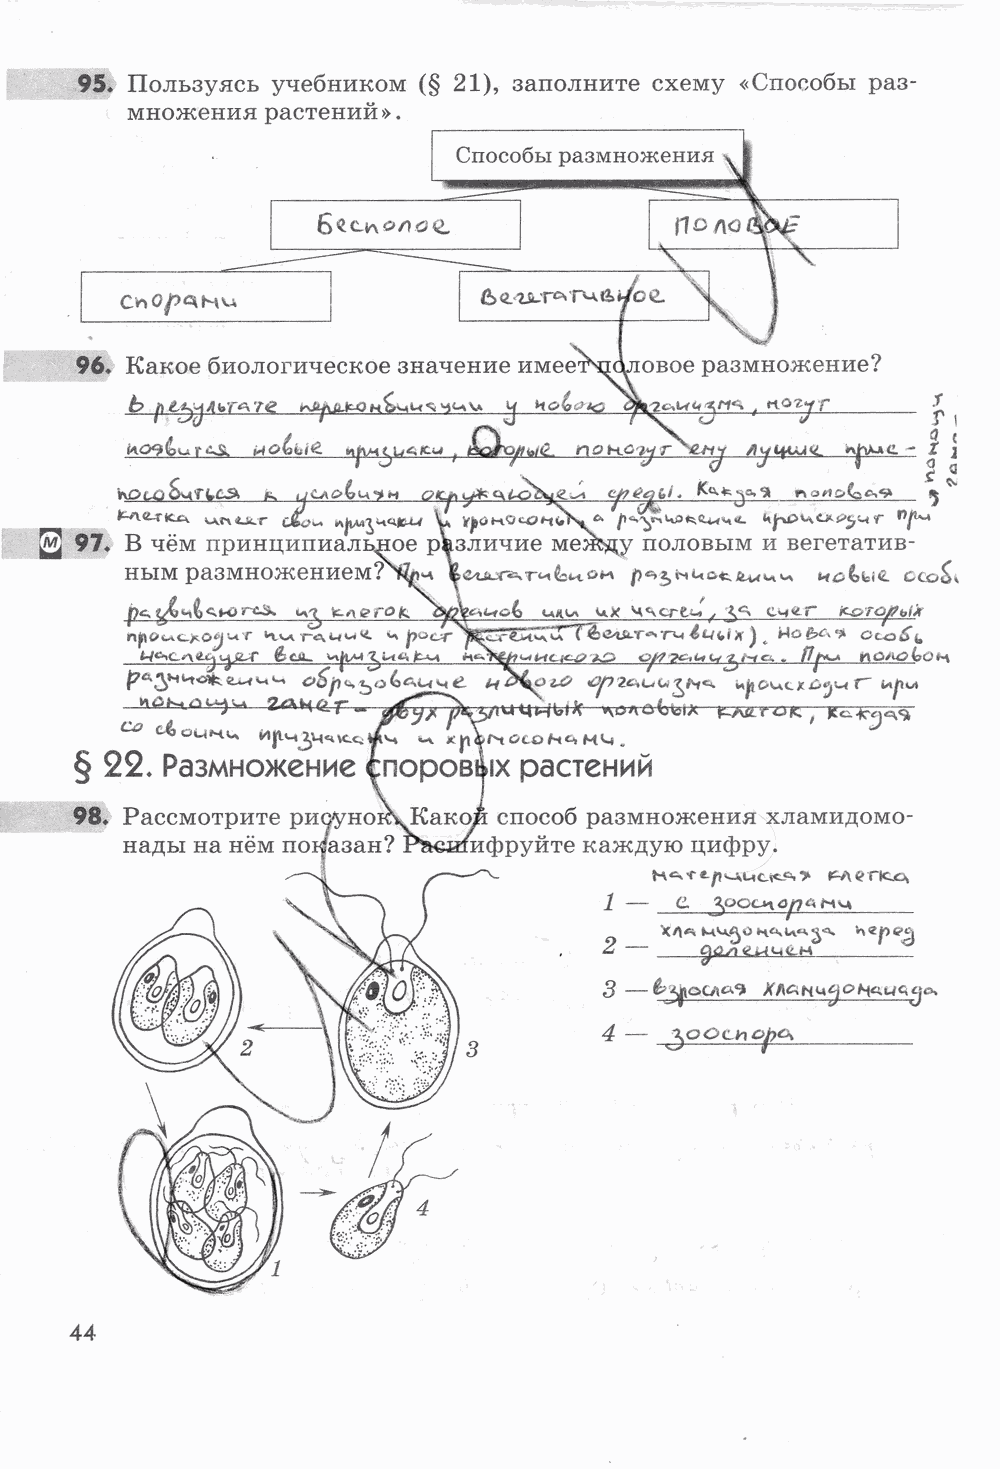 95. Пользуясь учебником (§ 21), заполните схему «Способы раз-
множения растений».
Способы размножения
Бесполое
ПОЛОВОЕ
спорами
Вегетативное
96. Какое биологическое значение имеет половое размножение?
В результате перекомбинации у нового организма, могут
появится новые признаки, которые помогут ему лучше прис-
пособиться к условиям окружающей среды. Каждая половая
клетка имеет свои признаки и хромосомы, а размножение происходит при
помощи
гаме-
М 97. В чём принципиальное различие между половым и вегетатив-
ным размножением? При вегетативном размножении новые особи
развиваются из клеток органов или их частей, за счет которых
происходит питание и рост растений (вегетативных). Новая особь
наследует все признаки материнского организма. При половом
размножении образование нового организма происходит при
помощи гамет - двух различных половых клеток, каждая
со своими признаками и хромосомами.
§ 22. Размножение споровых растений
98. Рассмотрите рисунок. Какой способ размножения хламидомо-
нады на нём показан? Расшифруйте каждую цифру.
материнская клетка
1 — с зооспорами
хламидоманада перед
2 — делением
3 — взрослая хламидоманада
4 — зооспора
2
3
4
1
44